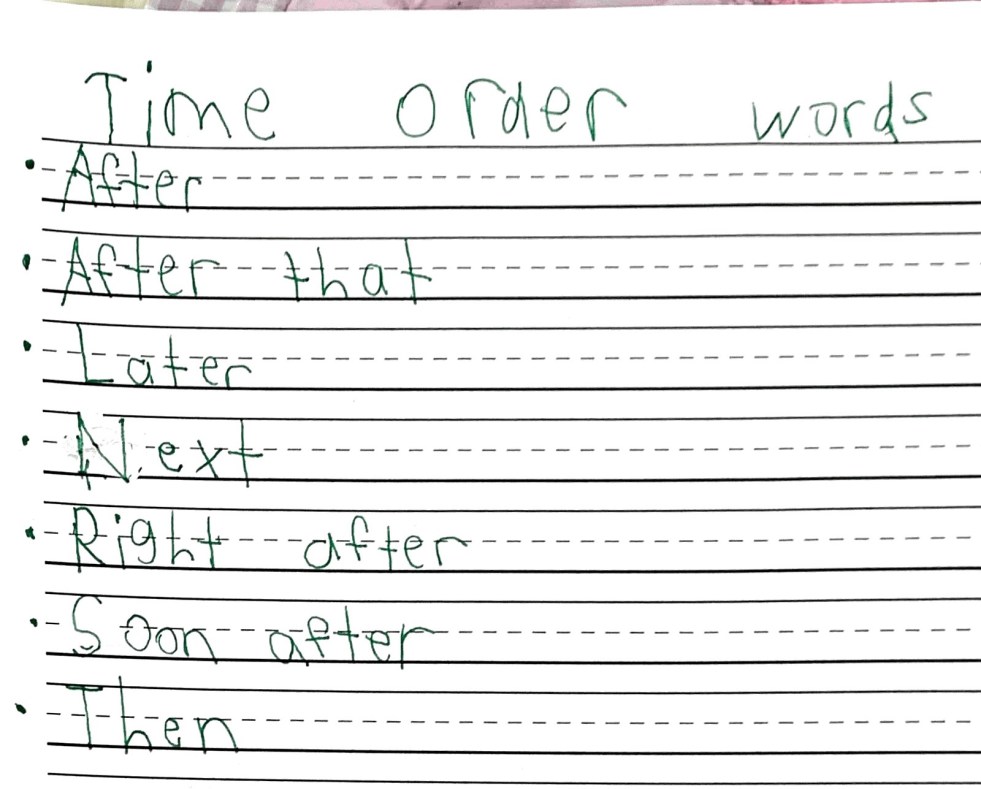 Time order words
• After
• After that
• Later
• Next
• Right after
• Soon after
• Then